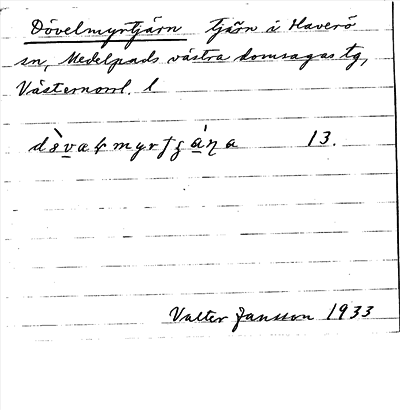 Dövelmyrtjärn tjärn i Haverö
sn, Medelpads västra domsagas tg,
Västernorrl. l
13.
Valter Jansson 1933